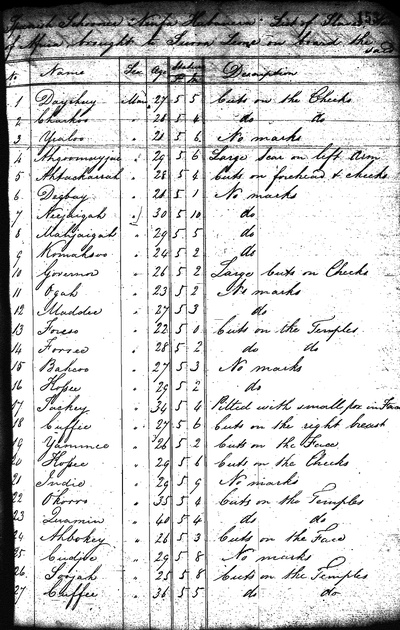 Spanish Schooner Ninfa Habanera. List of
of Africa brought to on board the said
No Name Sex Age Stature Description
F In
1 Man 27 5 5 Cuts on the Cheeks
2 Charkoo " 26 5 4 do do
3 " 20 5 6 No marks
4 " 29 5 6 Large scar on left Arm
5 " 28 5 4 Cuts on forehead & cheeks
6 Degbay " 5 1 No marks
7 " 30 5 10 do
8 " 29 5 5 do
9 Komahsoo " 24 5 2 do
10 Governor " 26 5 2 Large Cuts on Cheeks
11 Ogah " 23 5 2 No marks
12 Maddee " 27 5 3 do
13 " 22 5 0 Cuts on the Temples
14 " 28 5 2 do do
15 Bakeoo " 27 5 3 No marks
16 Hopee " 29 5 2 do
17 " 34 5 4 Pitted with small pox in Face
18 Cuffee " 27 5 6 Cuts on the right breast
19 Yammee " 26 5 2 Cuts on the Face
20 Hopee " 29 5 6 Cuts on the Cheeks
21 Indie " 29 5 9 No marks
22 Okorro " 35 5 4 Cuts on the Temples
23 Quamin " 40 5 4 do do
24 Ahbokey " 26 5 3 Cuts on the Face
25 Cudjoe " 29 5 8 No marks
26 " 25 5 8 Cuts on the Temples
27 Cuffee " 36 5 5 do do